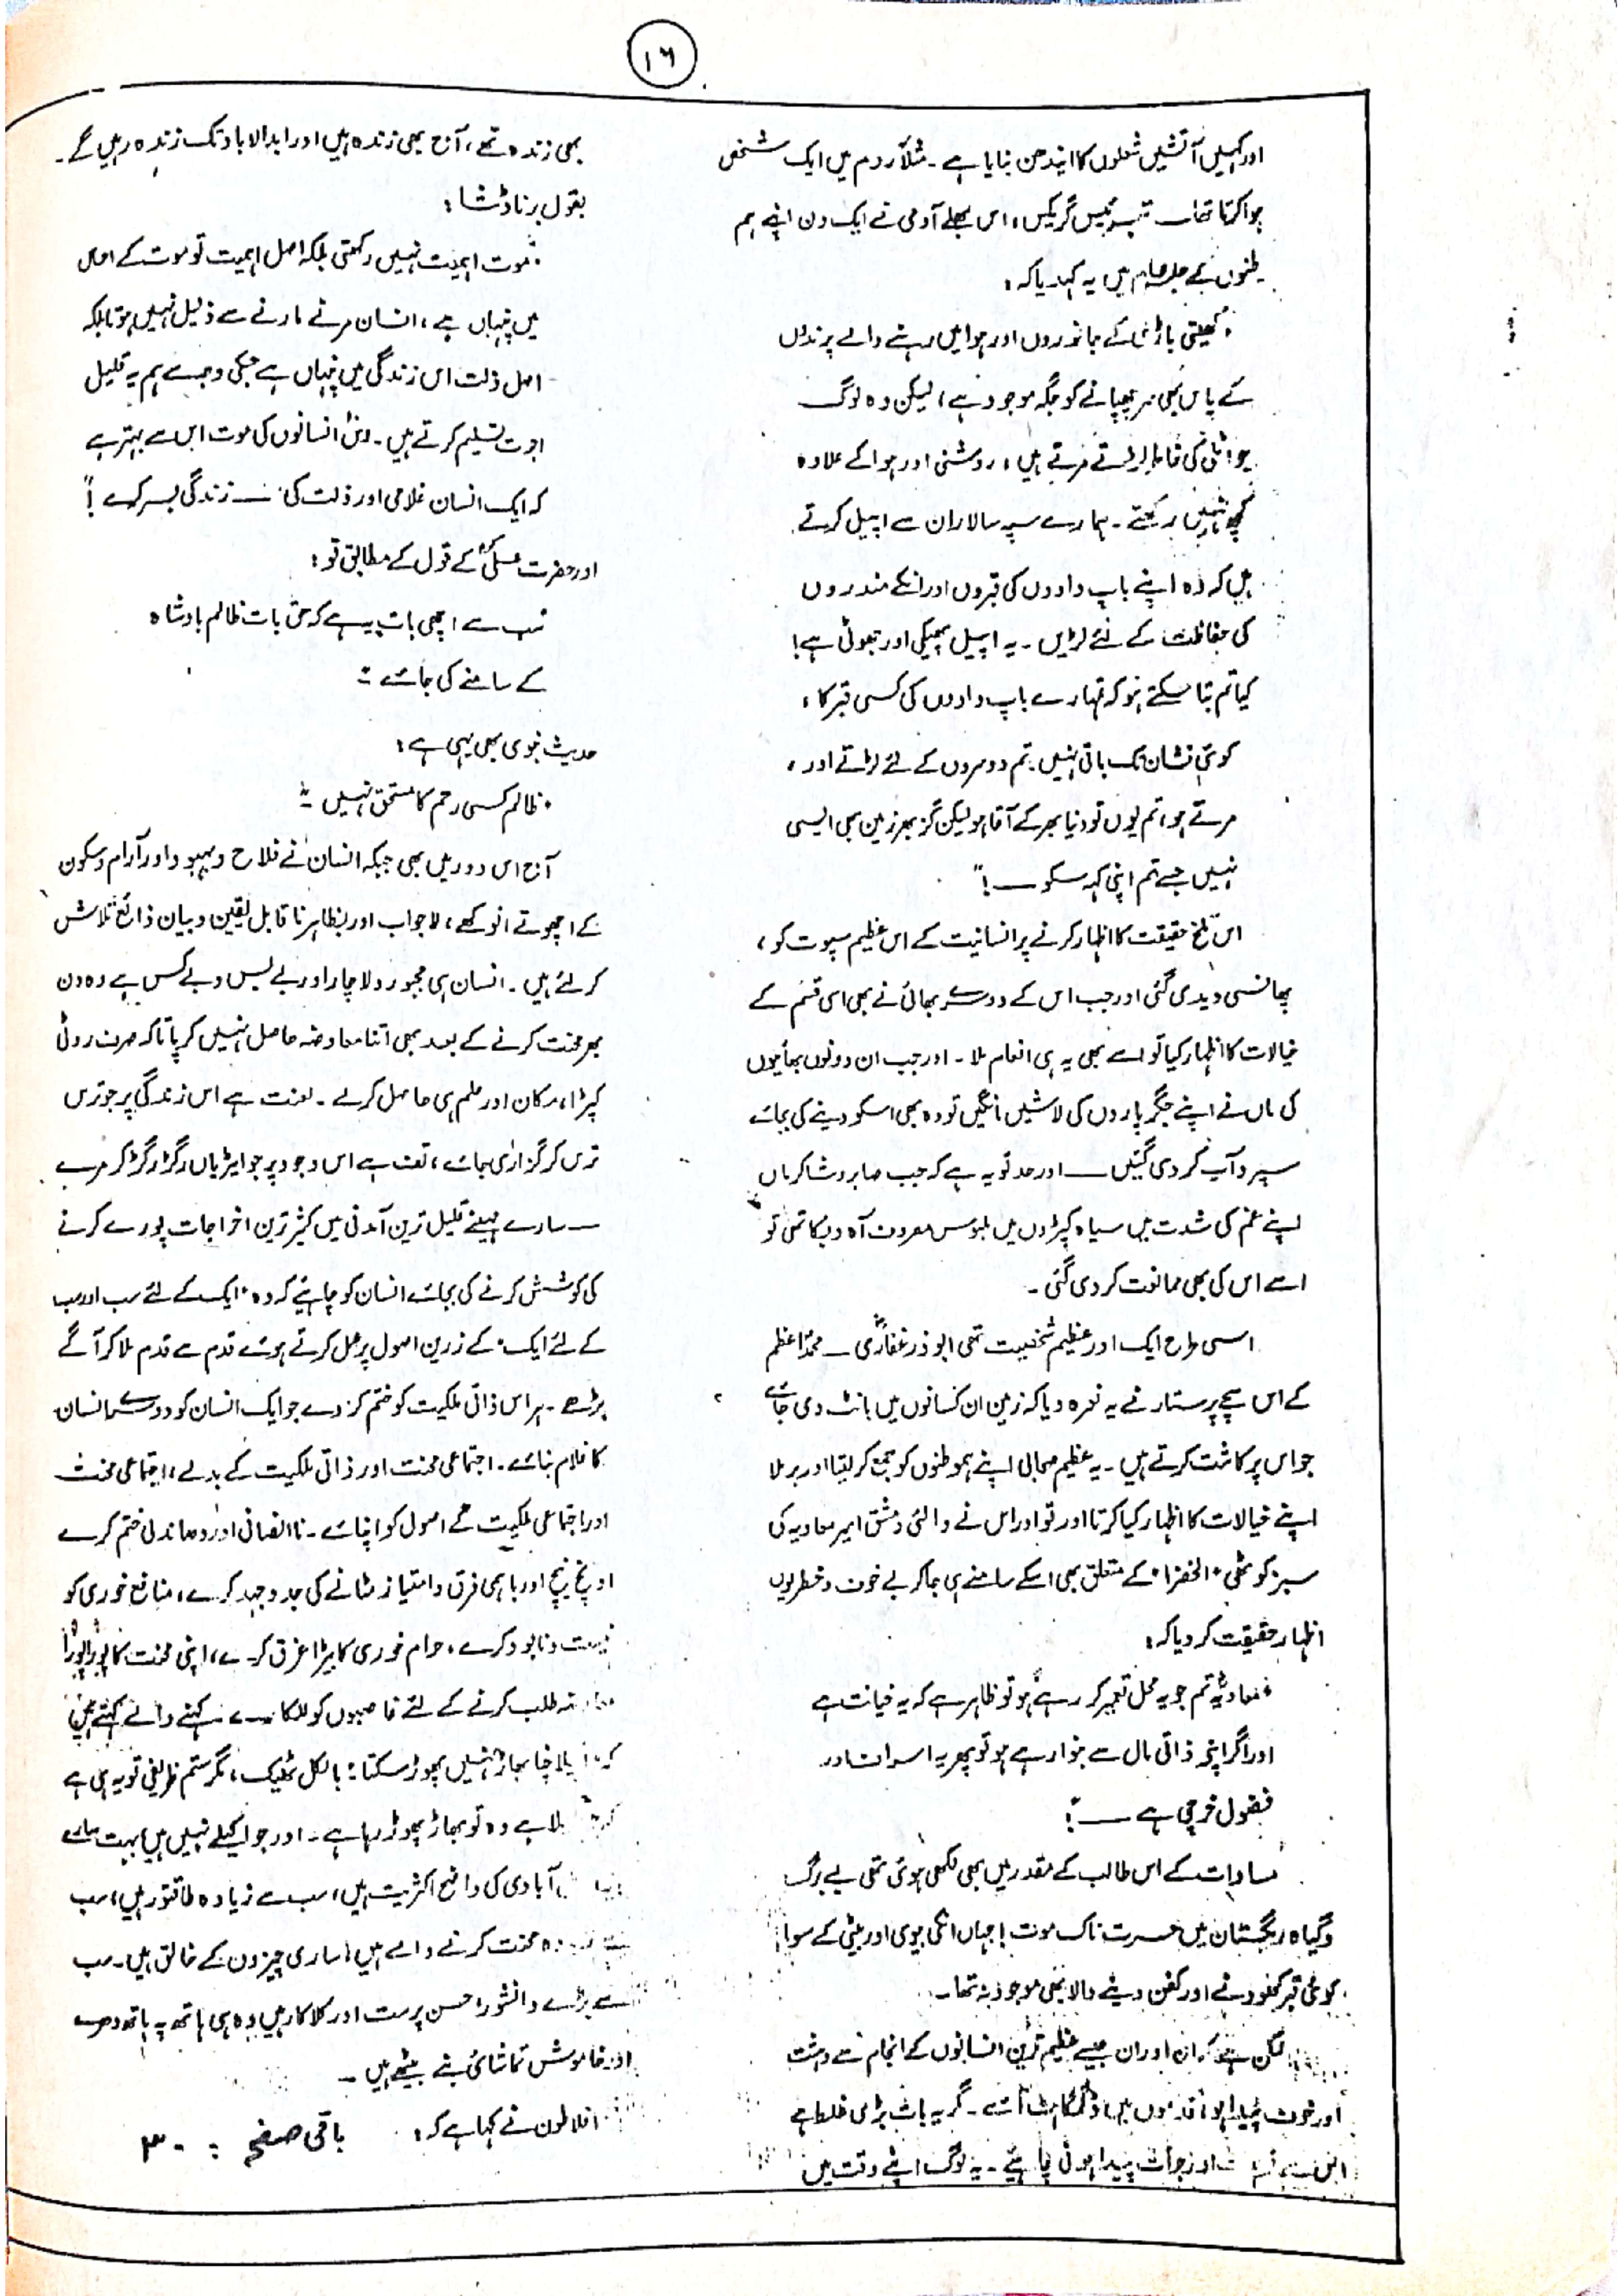 ۱۶
اور کہیں آتشیں شعلوں کا ایندھن بنایا ہے ۔ مثلاً روم میں ایک شخص
ہوا کرتا تھا گریکس، اس بھلے آدمی نے ایک دن اپنے ہم
وطنوں کے جلسہ عام میں یہ کہہ دیا کہ :
"کھیتی باڑی کے جانوروں اور ہوا میں رہنے والے پرندوں
کے پاس بھی سر چھپانے کو جگہ موجود ہے، لیکن وہ لوگ
جو اٹلی کی خاطر لڑتے مرتے ہیں، روشنی اور ہوا کے علاوہ
کچھ نہیں رکھتے ۔ ہمارے سپہ سالار ان سے اپیل کرتے
ہیں کہ وہ اپنے باپ دادوں کی قبروں اور انکے مندروں
کی حفاظت کے لئے لڑیں ۔ یہ اپیل پھیکی اور جھوٹی ہے!
کیا تم بتا سکتے ہو کہ تمہارے باپ دادوں کی کسی قبر کا،
کوئی نشان تک باقی نہیں۔ تم دوسروں کے لئے لڑتے اور،
مرتے ہو، تم یوں تو دنیا بھر کے آقا ہو لیکن گز بھر زمین بھی ایسی
نہیں جسے تم اپنی کہہ سکو ــــ!"
اس تلخ حقیقت کا اظہار کرنے پر انسانیت کے اس عظیم سپوت کو،
پھانسی دیدی گئی اور جب اس کے دوسرے بھائی نے بھی اسی قسم کے
خیالات کا اظہار کیا تو اسے بھی یہ ہی انعام ملا ۔ اور جب ان دونوں بھائیوں
کی ماں نے اپنے جگر پاروں کی لاشیں مانگیں تو وہ بھی اسکو دینے کی بجائے
سپرد آب کر دی گئیں ــــ اور حد تو یہ ہے کہ جب صابر و شاکر ماں
اپنے غم کی شدت میں سیاہ کپڑوں میں ملبوس مصروف آہ و بکا تھی تو
اسے اس کی بھی ممانعت کر دی گئی ۔
اسی طرح ایک اور عظیم شخصیت تھی ابوذر غفاریؓ ـ محمدؐ اعظم
کے اس سچے پرستار نے یہ نعرہ دیا کہ زمین ان کسانوں میں بانٹ دی جائے
جو اس پر کاشت کرتے ہیں ۔ یہ عظیم صحابی اپنے ہموطنوں کو جمع کر لیتا اور برملا
اپنے خیالات کا اظہار کیا کرتا اور تو اور اس نے والئی دمشق امیر معاویہ کی
سبز کوٹھی "الخضرا" کے متعلق بھی اسکے سامنے ہی جا کر بے خوف و خطر یوں
اظہار حقیقت کر دیا کہ :
"معاویہؓ تم جو یہ محل تعمیر کر رہے ہو تو ظاہر ہے کہ یہ خیانت ہے
اور اگر اپنے ذاتی مال سے بنوا رہے ہو تو پھر یہ اسراف اور
فضول خرچی ہے ــــ"!
مساوات کے اس طالب کے مقدر میں بھی لکھی ہوئی تھی بے برگ
و گیاہ ریگستان میں حسرت ناک موت! جہاں انکی بیوی اور بیٹی کے سوا
کوئی قبر کھودنے اور کفن دینے والا بھی موجود نہ تھا۔
ممکن ہے کہ ان اور ان جیسے عظیم ترین انسانوں کے انجام سے دہشت
اور خوف پیدا ہو، قدموں میں ڈگمگاہٹ آئے ۔ مگر یہ بات بڑی غلط ہے
اور جرأت پیدا ہونی چاہیئے ۔ یہ لوگ اپنے وقت میں
بھی زندہ تھے، آج بھی زندہ ہیں اور ابد الاباد تک زندہ رہیں گے ۔
بقول برناڈشا :
"موت اہمیت نہیں رکھتی بلکہ اصل اہمیت تو موت کے
میں پنہاں ہے، انسان مرنے مارنے سے ذلیل نہیں ہوتا بلکہ
اصل ذلت اس زندگی میں پنہاں ہے جسکی وجہ سے ہم یہ قلیل
اجرت تسلیم کرتے ہیں ۔ دس انسانوں کی موت اس سے بہتر ہے
کہ ایک انسان غلامی اور ذلت کی ـ زندگی بسر کرے !"
اور حضرت عیسیٰؑ کے قول کے مطابق تو :
"سب سے اچھی بات یہ ہے کہ حق بات ظالم بادشاہ
کے سامنے کی جائے :"
حدیث نبوی بھی یہی ہے :
"ظالم کسی رحم کا مستحق نہیں ۔"
آج اس دور میں بھی جبکہ انسان نے فلاح و بہبود اور آرام و سکون
کے اچھوتے انوکھے، لاجواب اور بظاہر ناقابل یقین و بیان ذرائع تلاش
کر لئے ہیں ۔ انسان ہی مجبور و لاچار اور بے بس و بے کس ہے وہ دن
بھر محنت کرنے کے بعد بھی اتنا معاوضہ حاصل نہیں کر پاتا کہ صرف روٹی
کپڑا، مکان اور علم ہی حاصل کرلے ۔ لعنت ہے اس زندگی پر جو ترس
ترس کر گزاری جائے، تف ہے اس وجود پر جو ایڑیاں رگڑ رگڑ کر مرے
ــ سارے مہینے قلیل ترین آمدنی میں کثیر ترین اخراجات پورے کرنے
کی کوشش کرنے کی بجائے انسان کو چاہیئے کہ وہ "ایک کے لئے سب اور سب
کے لئے ایک" کے زرین اصول پر عمل کرتے ہوئے قدم سے قدم ملا کر آگے
بڑھے ۔ ہر اس ذاتی ملکیت کو ختم کر دے جو ایک انسان کو دوسرے انسان
کا غلام بنائے ۔ اجتماعی محنت اور ذاتی ملکیت کے بدلے، اجتماعی محنت
اور اجتماعی ملکیت کے اصول کو اپنائے ۔ نا انصافی اور دھاندلی ختم کرے
اونچ نیچ اور باہمی فرق و امتیاز مٹانے کی جدوجہد کرے، منافع خوری کو
نیست و نابود کرے، حرام خوری کا بیڑا غرق کرے، اپنی محنت کا پورا پورا
معاوضہ طلب کرنے کے لئے غاصبوں کو للکارے ، کہنے والے کہتے ہیں
کہ، اکیلا چنا بھاڑ نہیں پھوڑ سکتا : بالکل ٹھیک، مگر ستم ظریفی تو یہ ہی ہے
کہ اکیلا ہے وہ تو بھاڑ پھوڑ رہا ہے ۔ اور جو اکیلے نہیں ہیں بہت سارے
آبادی کی واضح اکثریت ہیں، سب سے زیادہ طاقتور ہیں، سب
سے زیادہ محنت کرنے والے ہیں، ساری چیزوں کے خالق ہیں ۔ سب
سے بڑے دانشور، حسن پرست اور کلاکار ہیں وہ ہی ہاتھ پہ ہاتھ دھرے
اور خاموش تماشائی بنے بیٹھے ہیں ۔
افلاطون نے کہا ہے کہ :
باقی صفحہ : ۳۰